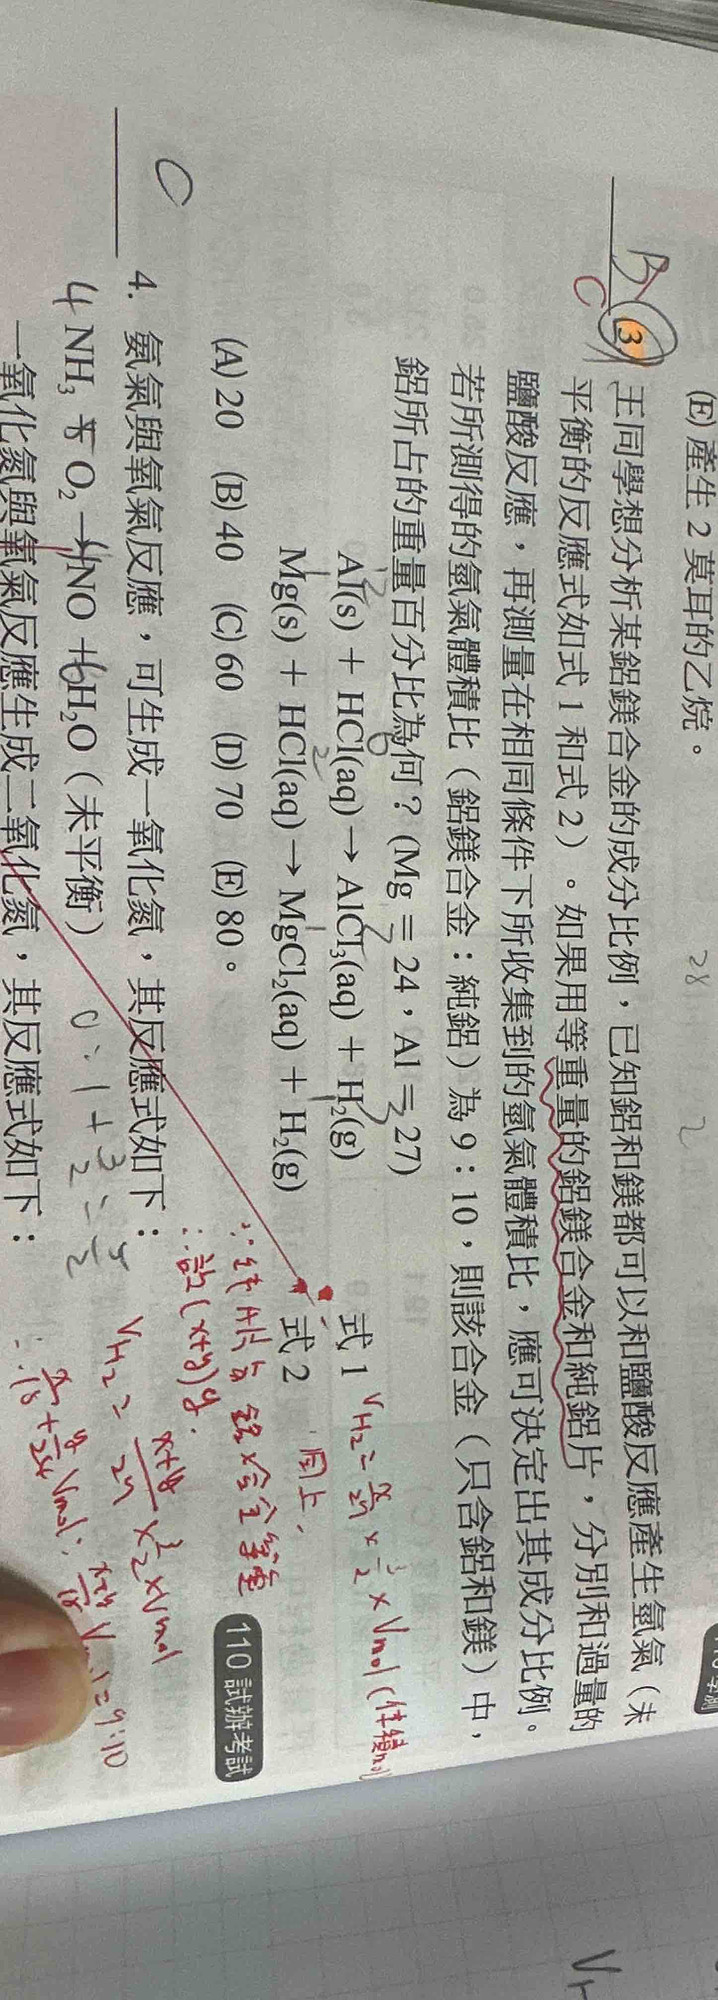 (E) 產生 2 莫耳的乙烷。
28
2
B
C
3
王同學想分析某鋁鎂合金的成分比例，已知鋁和鎂都可以和鹽酸反應產生氫氣（未
平衡的反應式如式 1 和式 2）。如果用等重量的鋁鎂合金和純鋁片，分別和過量的
鹽酸反應，再測量在相同條件下所收集到的氫氣體積比，應可決定出其成分比例。
若所測得的氫氣體積比（鋁鎂合金：純鋁）為 9：10，則該合金（只含鋁和鎂）中，
鋁所占的重量百分比為何？(Mg = 24，Al = 27)
Al(s) + HCl(aq) → AlCl₃(aq) + H₂(g) 式 1
Mg(s) + HCl(aq) → MgCl₂(aq) + H₂(g) 式 2
(A) 20 (B) 40 (C) 60 (D) 70 (E) 80。
110 試辦考試
V_H₂ = x/27 × 3/2 × Vmol
同上,
∵純Al與鋁鎂合金等重
∴設(x+y)g.
V_H₂ = (x+y)/27 × 3/2 × Vmol
C
4. 氨氣與氧氣反應，可生成一氧化氮，其反應式如下：
4 NH₃ + 5 O₂ → 4 NO + 6 H₂O（未平衡）
一氧化氮與氧氣反應生成二氧化氮，其反應式如下：